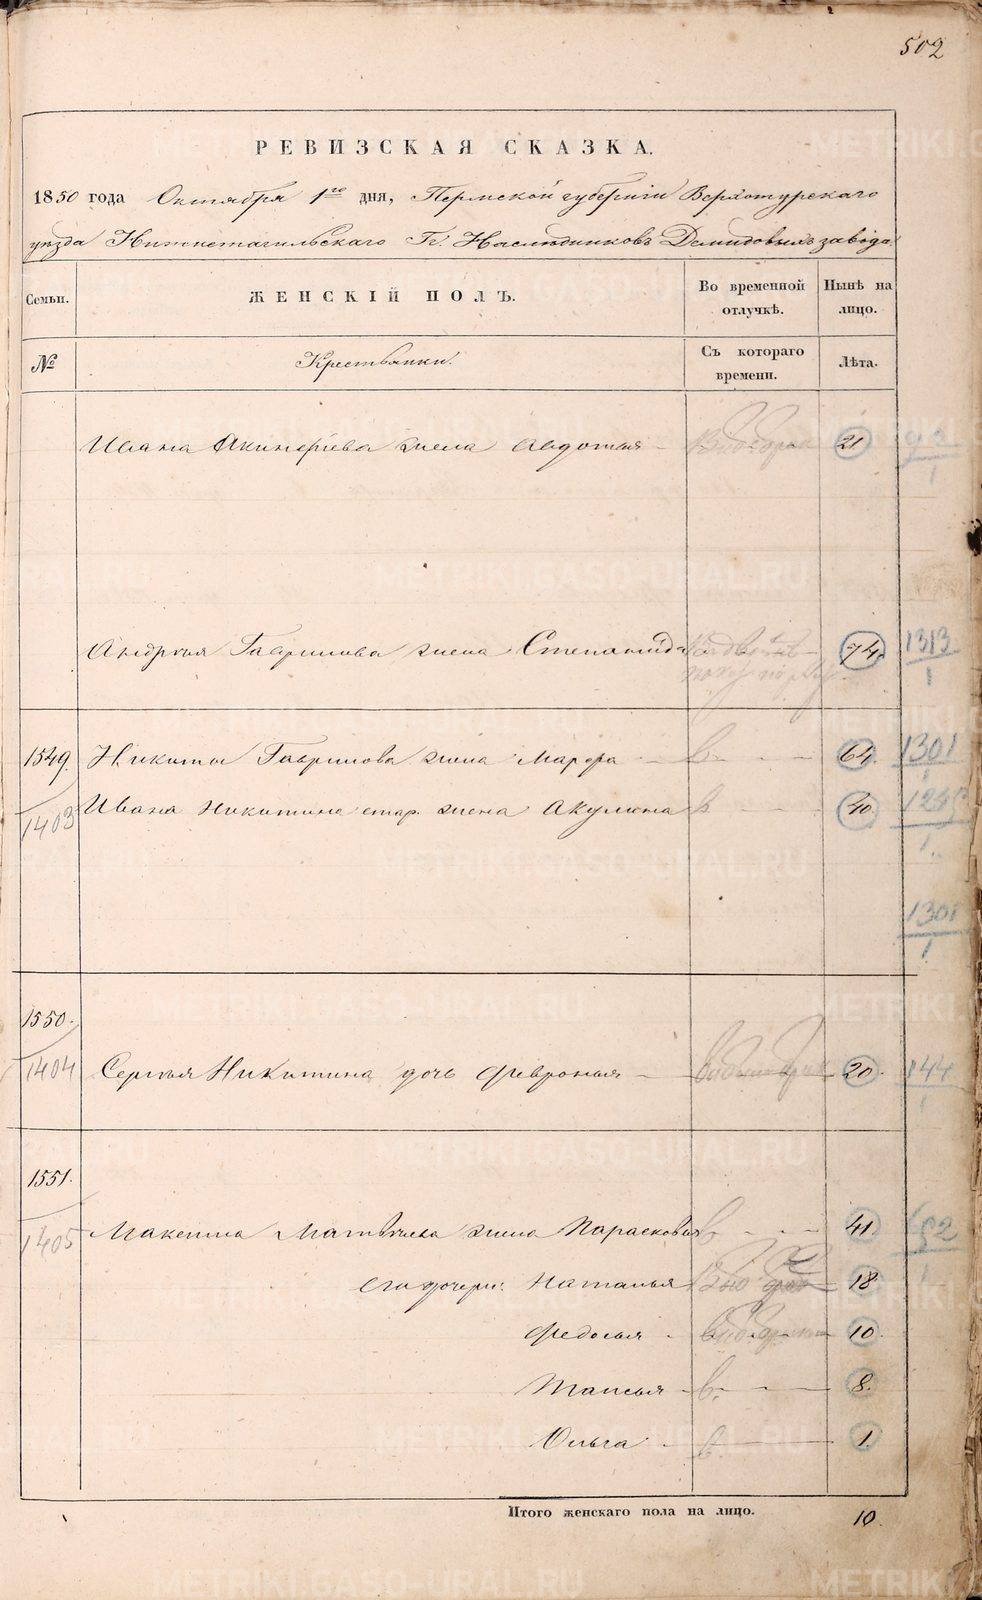 502
РЕВИЗСКАЯ СКАЗКА.
1850 года Октября 1го дня, Пермской губернiи Верхотурскаго
уѣзда Нижнетагильскаго Гг. Наслѣдниковъ Демидовыхъ завода
Семьи. ЖЕНСКIЙ ПОЛЪ. Во временной отлучкѣ. Нынѣ на лицо.
№ Крестьянки. Съ котораго времени. Лѣта.
Ивана Акинфіева жена Авдотья 21
Андрея Гаврилова жена Степанида 74. 1313 1
1549. Никиты Гаврилова жена Марфа в. 64. 1301 1
1403 Ивана Никитина стар. жена Акулина в. 40. 1
1301 1
1550.
1404 Сергѣя Никитина дочь Февронья 20. 144 1
1551.
1405 Максима Матвѣева жена Парасковья в. 41.
его дочери: Наталья 18
Федосья 10.
Таисья в. 8.
Ольга в. 1.
Итого женскаго пола на лицо. 10.
METRIKI.GASO-URAL.RU